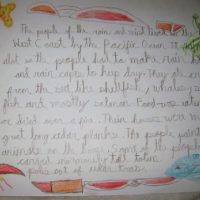 The people of the rain and mist lived in the
West Coast by the Pacific Ocean. It
alot so the people had to make rain
and rain capes to keep dry. They ate
from the sea like shellfish, whales, s
fish and mostly salmon. Food was eaten
or dried over a fire. Their houses were m
great long cedar planks. The people paint
animals on the house. Some of the people
carved enormously tall totem
poles out of cedar trees.